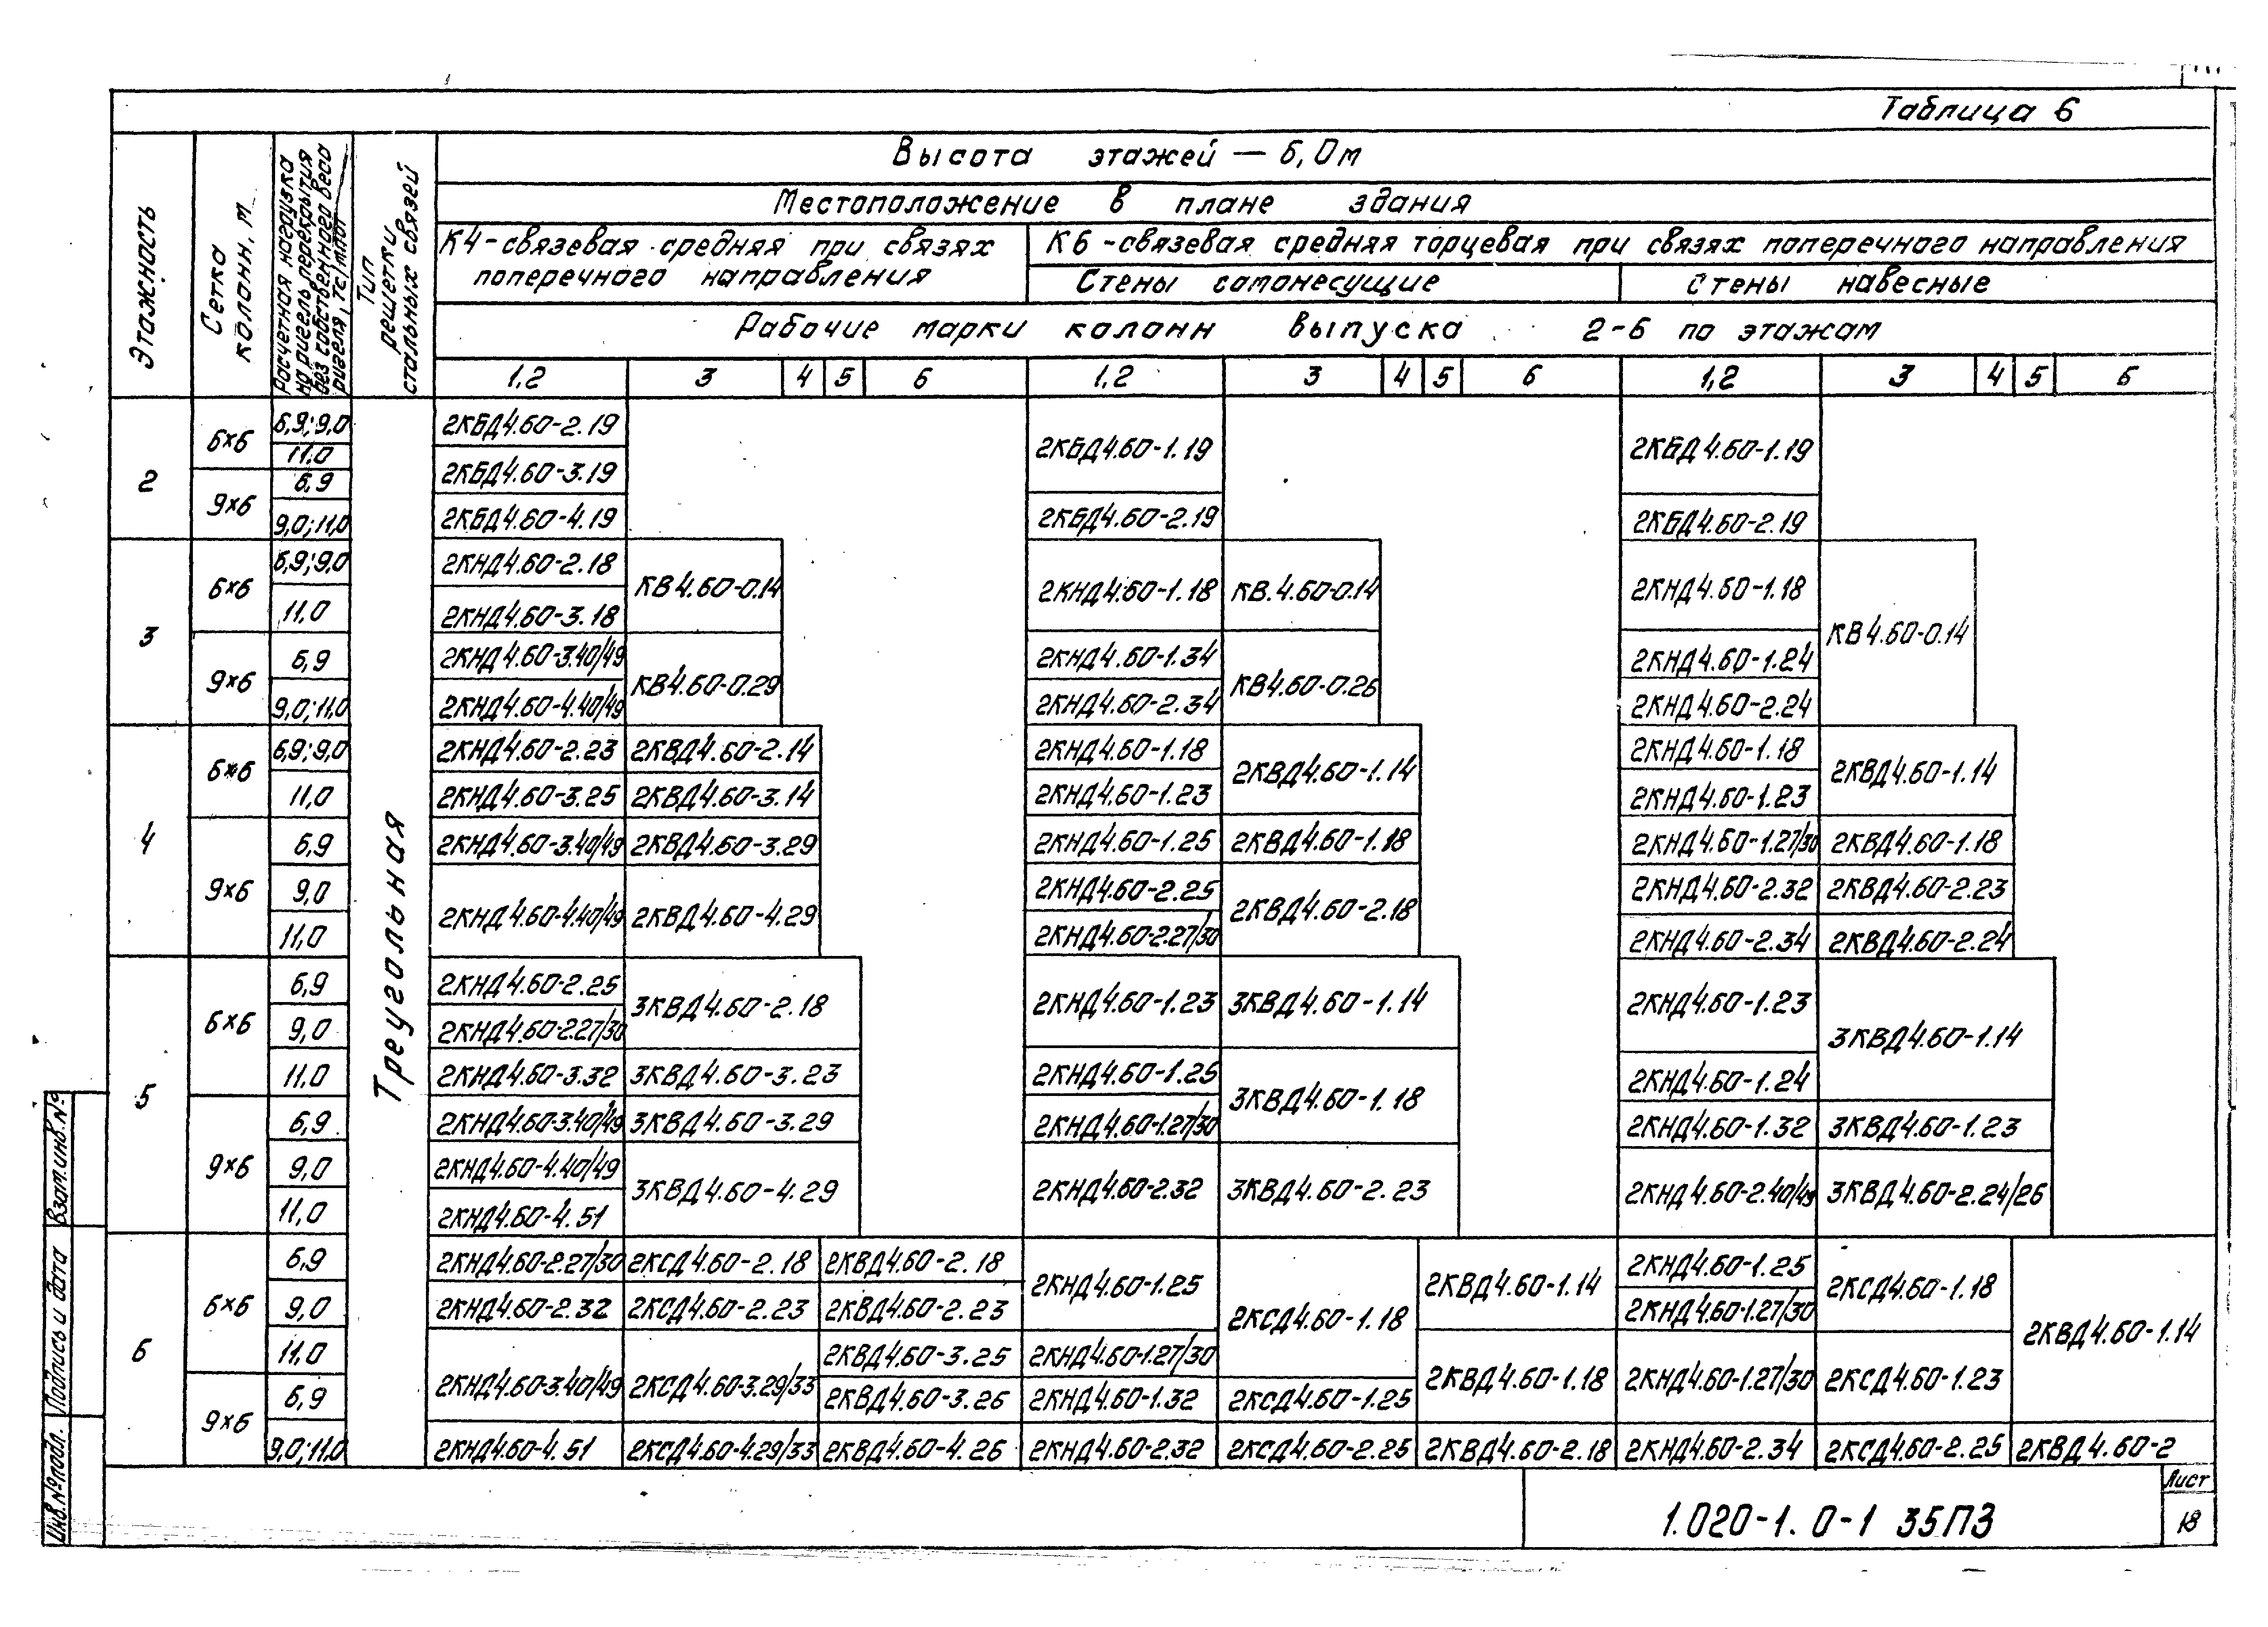 Таблица 6
Этажность
Сетка колонн, м
Расчетная нагрузка на ригель перекрытия без собственного веса ригеля, тс/м.пог
Тип решетки стальных связей
Высота этажей — 6,0м
Местоположение в плане здания
К4-связевая средняя при связях поперечного направления
К6-связевая средняя торцевая при связях поперечного направления
Стены самонесущие
Стены навесные
Рабочие марки колонн выпуска 2-6 по этажам
1,2 3 4 5 6 1,2 3 4 5 6 1,2 3 4 5 6
Треугольная
2
6×6
6,9; 9,0 2КБД4.60-2.19 2КБД4.60-1.19 2КБД4.60-1.19
11,0 2КБД4.60-3.19
9×6
6,9
9,0; 11,0 2КБД4.60-4.19 2КБД4.60-2.19 2КБД4.60-2.19
3
6×6
6,9; 9,0 2КНД4.60-2.18 КВ4.60-0.14 2КНД4.60-1.18 КВ.4.60-0.14 2КНД4.60-1.18 КВ4.60-0.14
11,0 2КНД4.60-3.18
9×6
6,9 2КНД4.60-3.40/49 КВ4.60-0.29 2КНД4.60-1.34 КВ4.60-0.26 2КНД4.60-1.24
9,0; 11,0 2КНД4.60-4.40/49 2КНД4.60-2.34 2КНД4.60-2.24
4
6×6
6,9; 9,0 2КНД4.60-2.23 2КВД4.60-2.14 2КНД4.60-1.18 2КВД4.60-1.14 2КНД4.60-1.18 2КВД4.60-1.14
11,0 2КНД4.60-3.25 2КВД4.60-3.14 2КНД4.60-1.23 2КНД4.60-1.23
9×6
6,9 2КНД4.60-3.40/49 2КВД4.60-3.29 2КНД4.60-1.25 2КВД4.60-1.18 2КНД4.60-1.27/30 2КВД4.60-1.18
9,0 2КНД4.60-4.40/49 2КВД4.60-4.29 2КНД4.60-2.25 2КВД4.60-2.18 2КНД4.60-2.32 2КВД4.60-2.23
11,0 2КНД4.60-2.27/30 2КНД4.60-2.34 2КВД4.60-2.24
5
6×6
6,9 2КНД4.60-2.25 3КВД4.60-2.18 2КНД4.60-1.23 3КВД4.60-1.14 2КНД4.60-1.23 3КВД4.60-1.14
9,0 2КНД4.60-2.27/30
11,0 2КНД4.60-3.32 3КВД4.60-3.23 2КНД4.60-1.25 3КВД4.60-1.18 2КНД4.60-1.24
9×6
6,9 2КНД4.60-3.40/49 3КВД4.60-3.29 2КНД4.60-1.27/30 2КНД4.60-1.32 3КВД4.60-1.23
9,0 2КНД4.60-4.40/49 3КВД4.60-4.29 2КНД4.60-2.32 3КВД4.60-2.23 2КНД4.60-2.40/49 3КВД4.60-2.24/26
11,0 2КНД4.60-4.51
6
6×6
6,9 2КНД4.60-2.27/30 2КСД4.60-2.18 2КВД4.60-2.18 2КНД4.60-1.25 2КСД4.60-1.18 2КВД4.60-1.14 2КНД4.60-1.25 2КСД4.60-1.18 2КВД4.60-1.14
9,0 2КНД4.60-2.32 2КСД4.60-2.23 2КВД4.60-2.23 2КНД4.60-1.27/30
11,0 2КНД4.60-3.40/49 2КСД4.60-3.29/33 2КВД4.60-3.25 2КНД4.60-1.27/30 2КВД4.60-1.18 2КНД4.60-1.27/30 2КСД4.60-1.23
9×6
6,9 2КВД4.60-3.26 2КНД4.60-1.32 2КСД4.60-1.25
9,0; 11,0 2КНД4.60-4.51 2КСД4.60-4.29/33 2КВД4.60-4.26 2КНД4.60-2.32 2КСД4.60-2.25 2КВД4.60-2.18 2КНД4.60-2.34 2КСД4.60-2.25 2КВД4.60-2
Взам.инв.№
Подпись и дата
Инв.№подл.
1.020-1. 0-1 35ПЗ
Лист
18